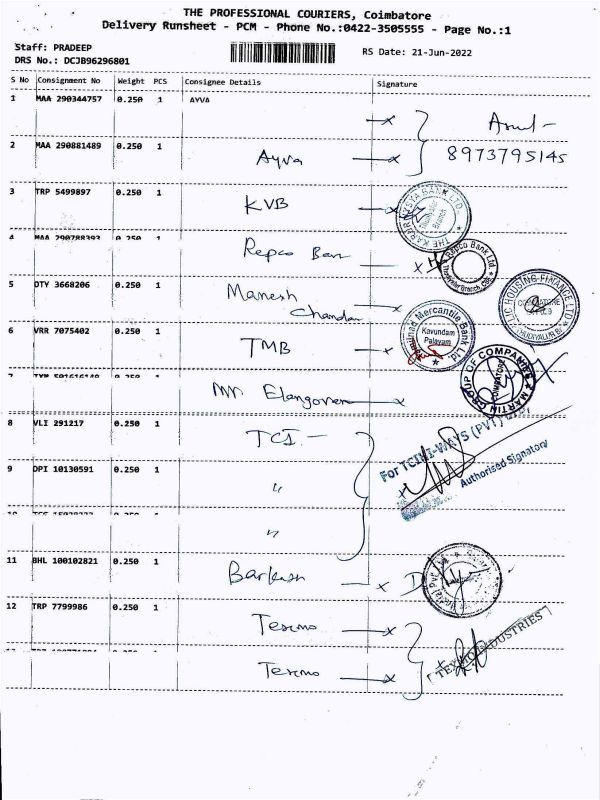 THE PROFESSIONAL COURIERS, Coimbatore
Delivery Runsheet - PCM - Phone No.:0422-3505555 - Page No.:1
Staff: PRADEEP
DRS No.: DCJB96296801
RS Date: 21-Jun-2022
S No Consignment No Weight PCS Consignee Details Signature
1 MAA 290344757 0.250 1 AYVA
8973795145
2 MAA 290881489 0.250 1 Ayva
3 TRP 5499897 0.250 1 KVB
THE KARUR VYSYA BANK LTD
4 MAA 290788393 0.250 Repco Ban
Repco Bank Ltd.
5 DTY 3668206 0.250 1 Manesh
Chandan
LIC HOUSING FINANCE LTD
COIMBATORE
6 VRR 7075402 0.250 1 TMB
Tamilnad Mercantile Bank Ltd.
Kavundam
Palayam
7 Mr Elangovan
MARTIN GROUP OF COMPANIES
COIMBATORE
8 VLI 291217 0.250 1 TCI -
For TCI HI-WAYS (PVT)
Authorised Signatory
9 DPI 10130591 0.250 1 "
10 "
11 BHL 100102821 0.250 1
12 TRP 7799986 0.250 1 Texmo
Texmo
TEXMO INDUSTRIES